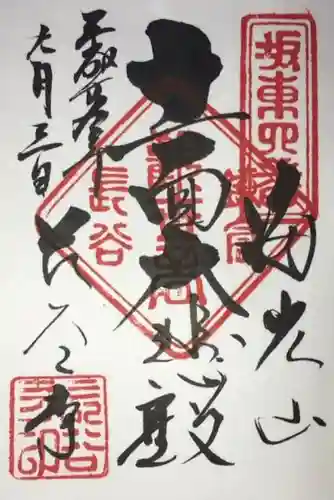 坂東四番
海光山
十一面大悲殿
鎌倉
長谷
平成
七月三日
長谷寺